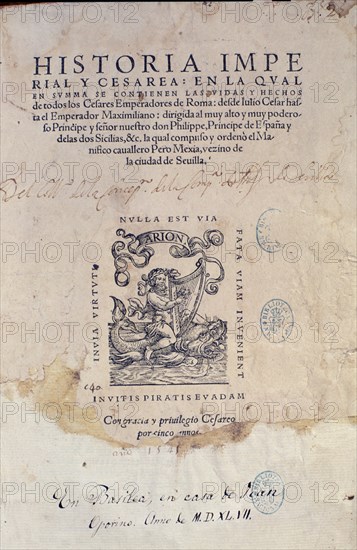 HISTORIA IMPE
RIAL Y CESAREA: EN LA QVAL
EN SVMMA SE CONTIENEN LAS VIDAS Y HECHOS
de todos los Cesares Emperadores de Roma: desde Iulio Cesar has
ta el Emperador Maximiliano: dirigida al muy alto y muy podero-
so Principe y señor nuestro don Philippe, Principe de España y
delas dos Sicilias, &c. la qual compuso y ordenò el Ma-
nifico cauallero Pero Mexia, vezino de
la ciudad de Seuilla.
NVLLA EST VIA
INVIA VIRTVTI
ARION
FATA VIAM INVENIENT
INVITIS PIRATIS EVADAM
Con gracia y priuilegio Cesareo
por cinco annos.
En Basilea, en casa de Ioan
Oporino. Anno de M.D.XL.VII.